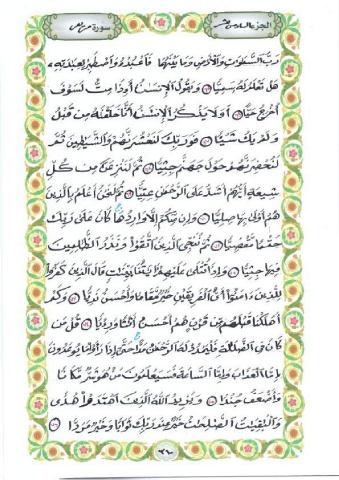 الجزء السادس عشر
سورة مريم
رَبُّ السَّمَٰوَٰتِ وَالْأَرْضِ وَمَا بَيْنَهُمَا فَاعْبُدْهُ وَاصْطَبِرْ لِعِبَٰدَتِهِ
هَلْ تَعْلَمُ لَهُ سَمِيًّا وَيَقُولُ الْإِنسَٰنُ أَءِذَا مَا مِتُّ لَسَوْفَ
أُخْرَجُ حَيًّا أَوَلَا يَذْكُرُ الْإِنسَٰنُ أَنَّا خَلَقْنَٰهُ مِن قَبْلُ
وَلَمْ يَكُ شَيْئًا فَوَرَبِّكَ لَنَحْشُرَنَّهُمْ وَالشَّيَٰطِينَ ثُمَّ
لَنُحْضِرَنَّهُمْ حَوْلَ جَهَنَّمَ جِثِيًّا ثُمَّ لَنَنزِعَنَّ مِن كُلِّ
شِيعَةٍ أَيُّهُمْ أَشَدُّ عَلَى الرَّحْمَٰنِ عِتِيًّا ثُمَّ لَنَحْنُ أَعْلَمُ بِالَّذِينَ
هُمْ أَوْلَىٰ بِهَا صِلِيًّا وَإِن مِّنكُمْ إِلَّا وَارِدُهَا كَانَ عَلَىٰ رَبِّكَ
حَتْمًا مَّقْضِيًّا ثُمَّ نُنَجِّي الَّذِينَ اتَّقَوا وَّنَذَرُ الظَّٰلِمِينَ
فِيهَا جِثِيًّا وَإِذَا تُتْلَىٰ عَلَيْهِمْ ءَايَٰتُنَا بَيِّنَٰتٍ قَالَ الَّذِينَ كَفَرُوا
لِلَّذِينَ ءَامَنُوا أَيُّ الْفَرِيقَيْنِ خَيْرٌ مَّقَامًا وَأَحْسَنُ نَدِيًّا وَكَمْ
أَهْلَكْنَا قَبْلَهُم مِّن قَرْنٍ هُمْ أَحْسَنُ أَثَٰثًا وَرِءْيًا قُلْ مَن
كَانَ فِي الضَّلَٰلَةِ فَلْيَمْدُدْ لَهُ الرَّحْمَٰنُ مَدًّا حَتَّىٰ إِذَا رَأَوْا مَا يُوعَدُونَ
إِمَّا الْعَذَابَ وَإِمَّا السَّاعَةَ فَسَيَعْلَمُونَ مَنْ هُوَ شَرٌّ مَّكَانًا
وَأَضْعَفُ جُندًا وَيَزِيدُ اللَّهُ الَّذِينَ اهْتَدَوْا هُدًى
وَالْبَٰقِيَٰتُ الصَّٰلِحَٰتُ خَيْرٌ عِندَ رَبِّكَ ثَوَابًا وَخَيْرٌ مَّرَدًّا
٣١٠